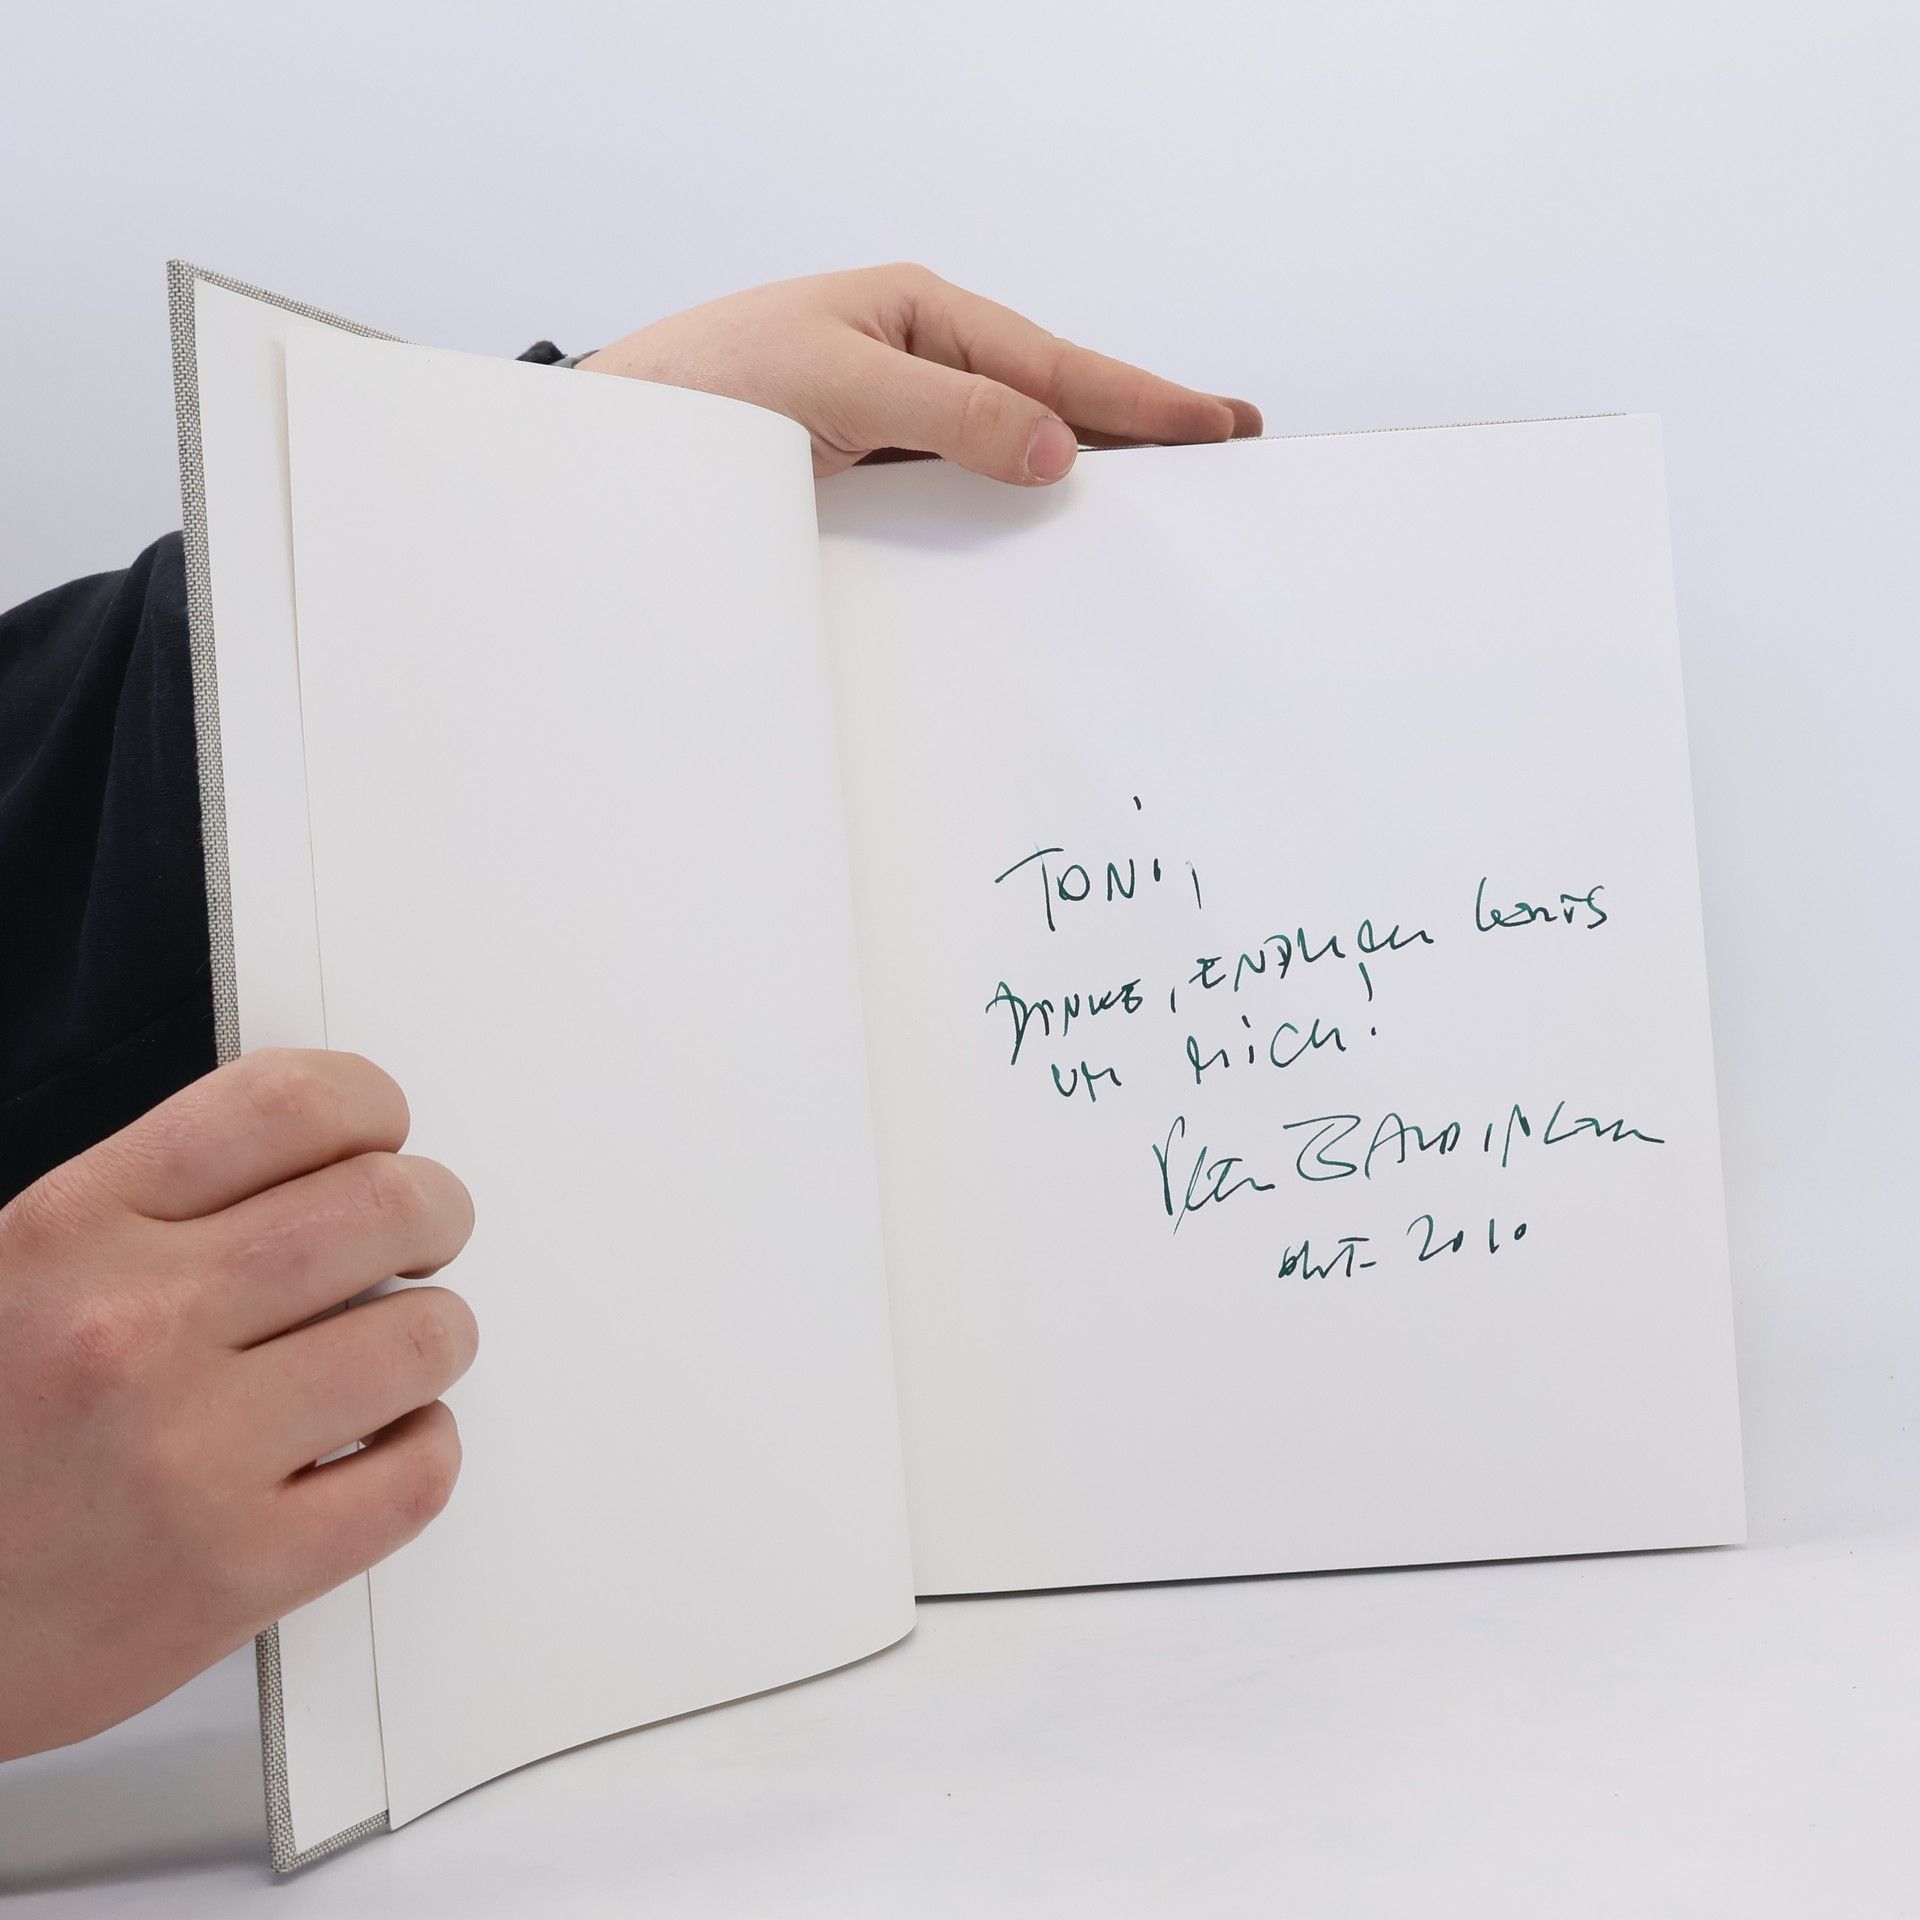 TONi,
DANKE, ENDLICH
UM MICH!
PETER BALDINGER
OKT- 2010